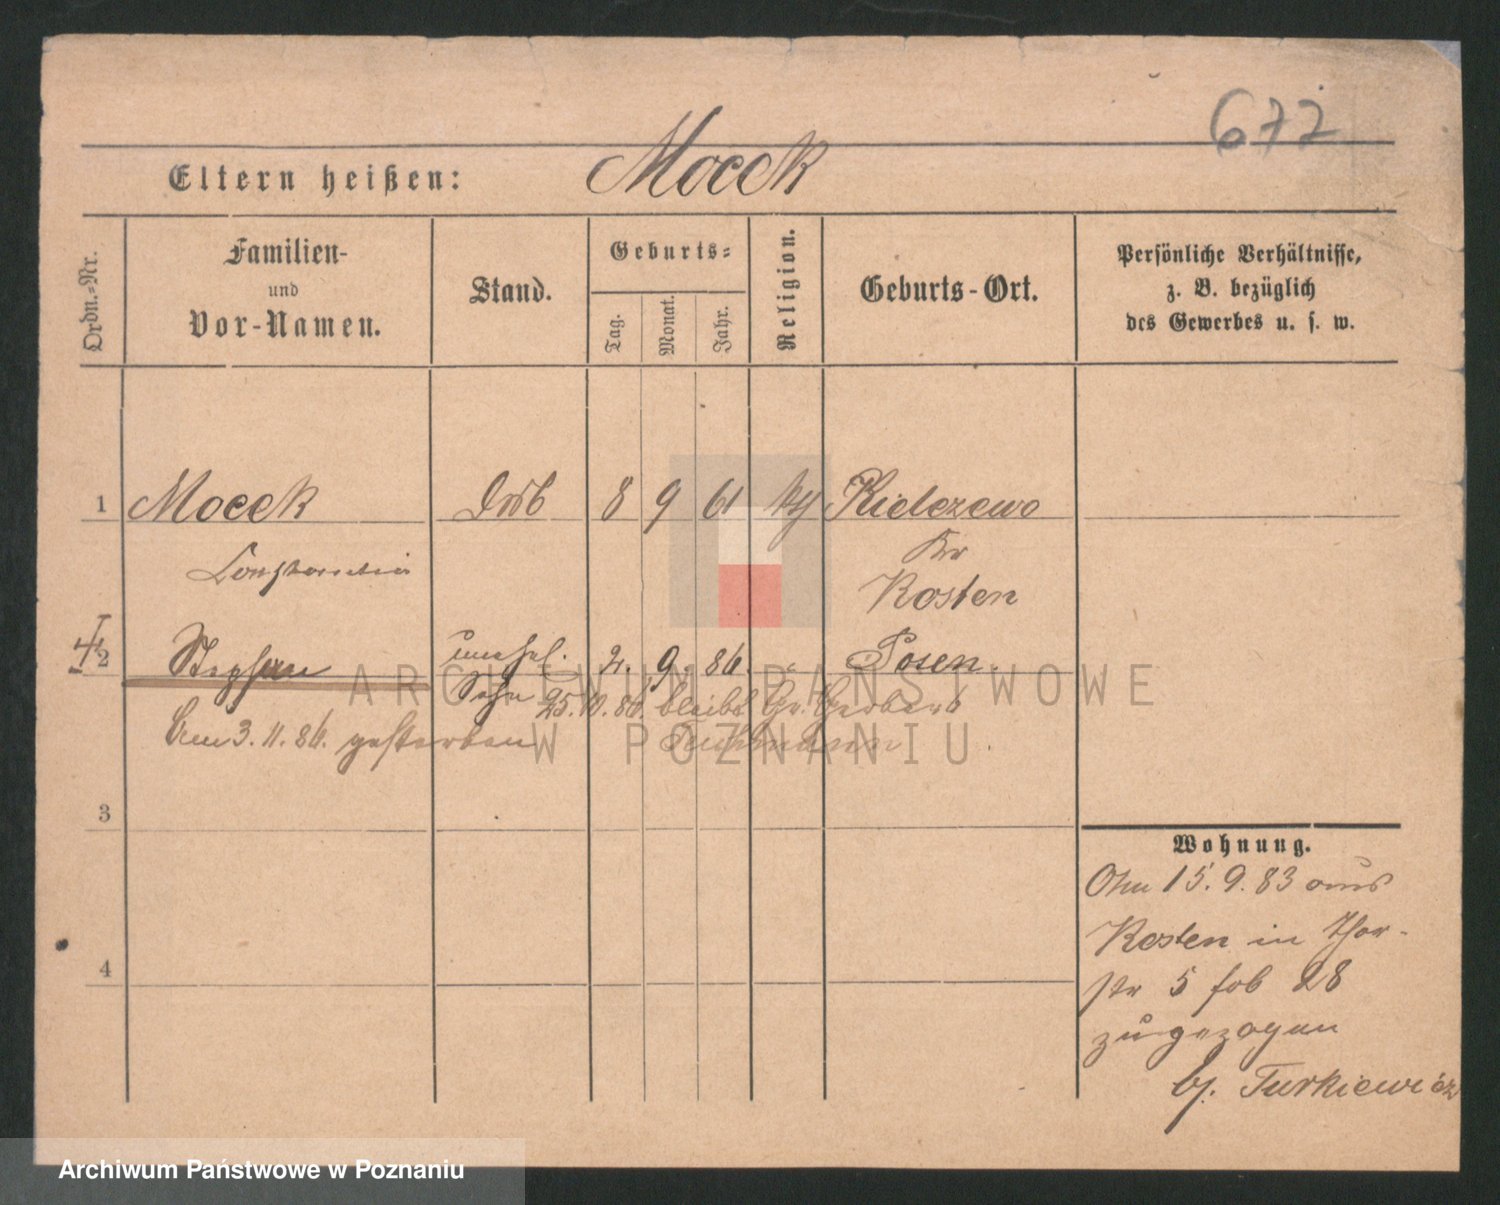 677
Eltern heißen: Mocek
Ordn.=Nr.
Familien-
und
Vor-Namen.
Stand.
Geburts=
Tag.
Monat.
Jahr.
Religion.
Geburts-Ort.
Persönliche Verhältnisse,
z. B. bezüglich
des Gewerbes u. s. w.
1 Mocek 8 9 61 Kielczewo
Constantia Kr
Kosten
2 Stephan unehel. 2. 9. 86. " Posen.
Sohn 25.10.86. bleibt
3.11.86. gestorben
3
4
Wohnung.
15. 9. 83 aus
Kosten in Thor-
str 5 fob 28
zugezogen
bj. Turkiewicz
ARCHIWUM PAŃSTWOWE
W POZNANIU
Archiwum Państwowe w Poznaniu